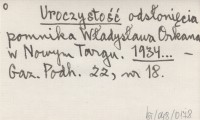 Uroczystość odsłonięcia
pomnika Władysława Orkana
w Nowym Targu. 1934... -
Gaz. Podh. 22, nr 18.